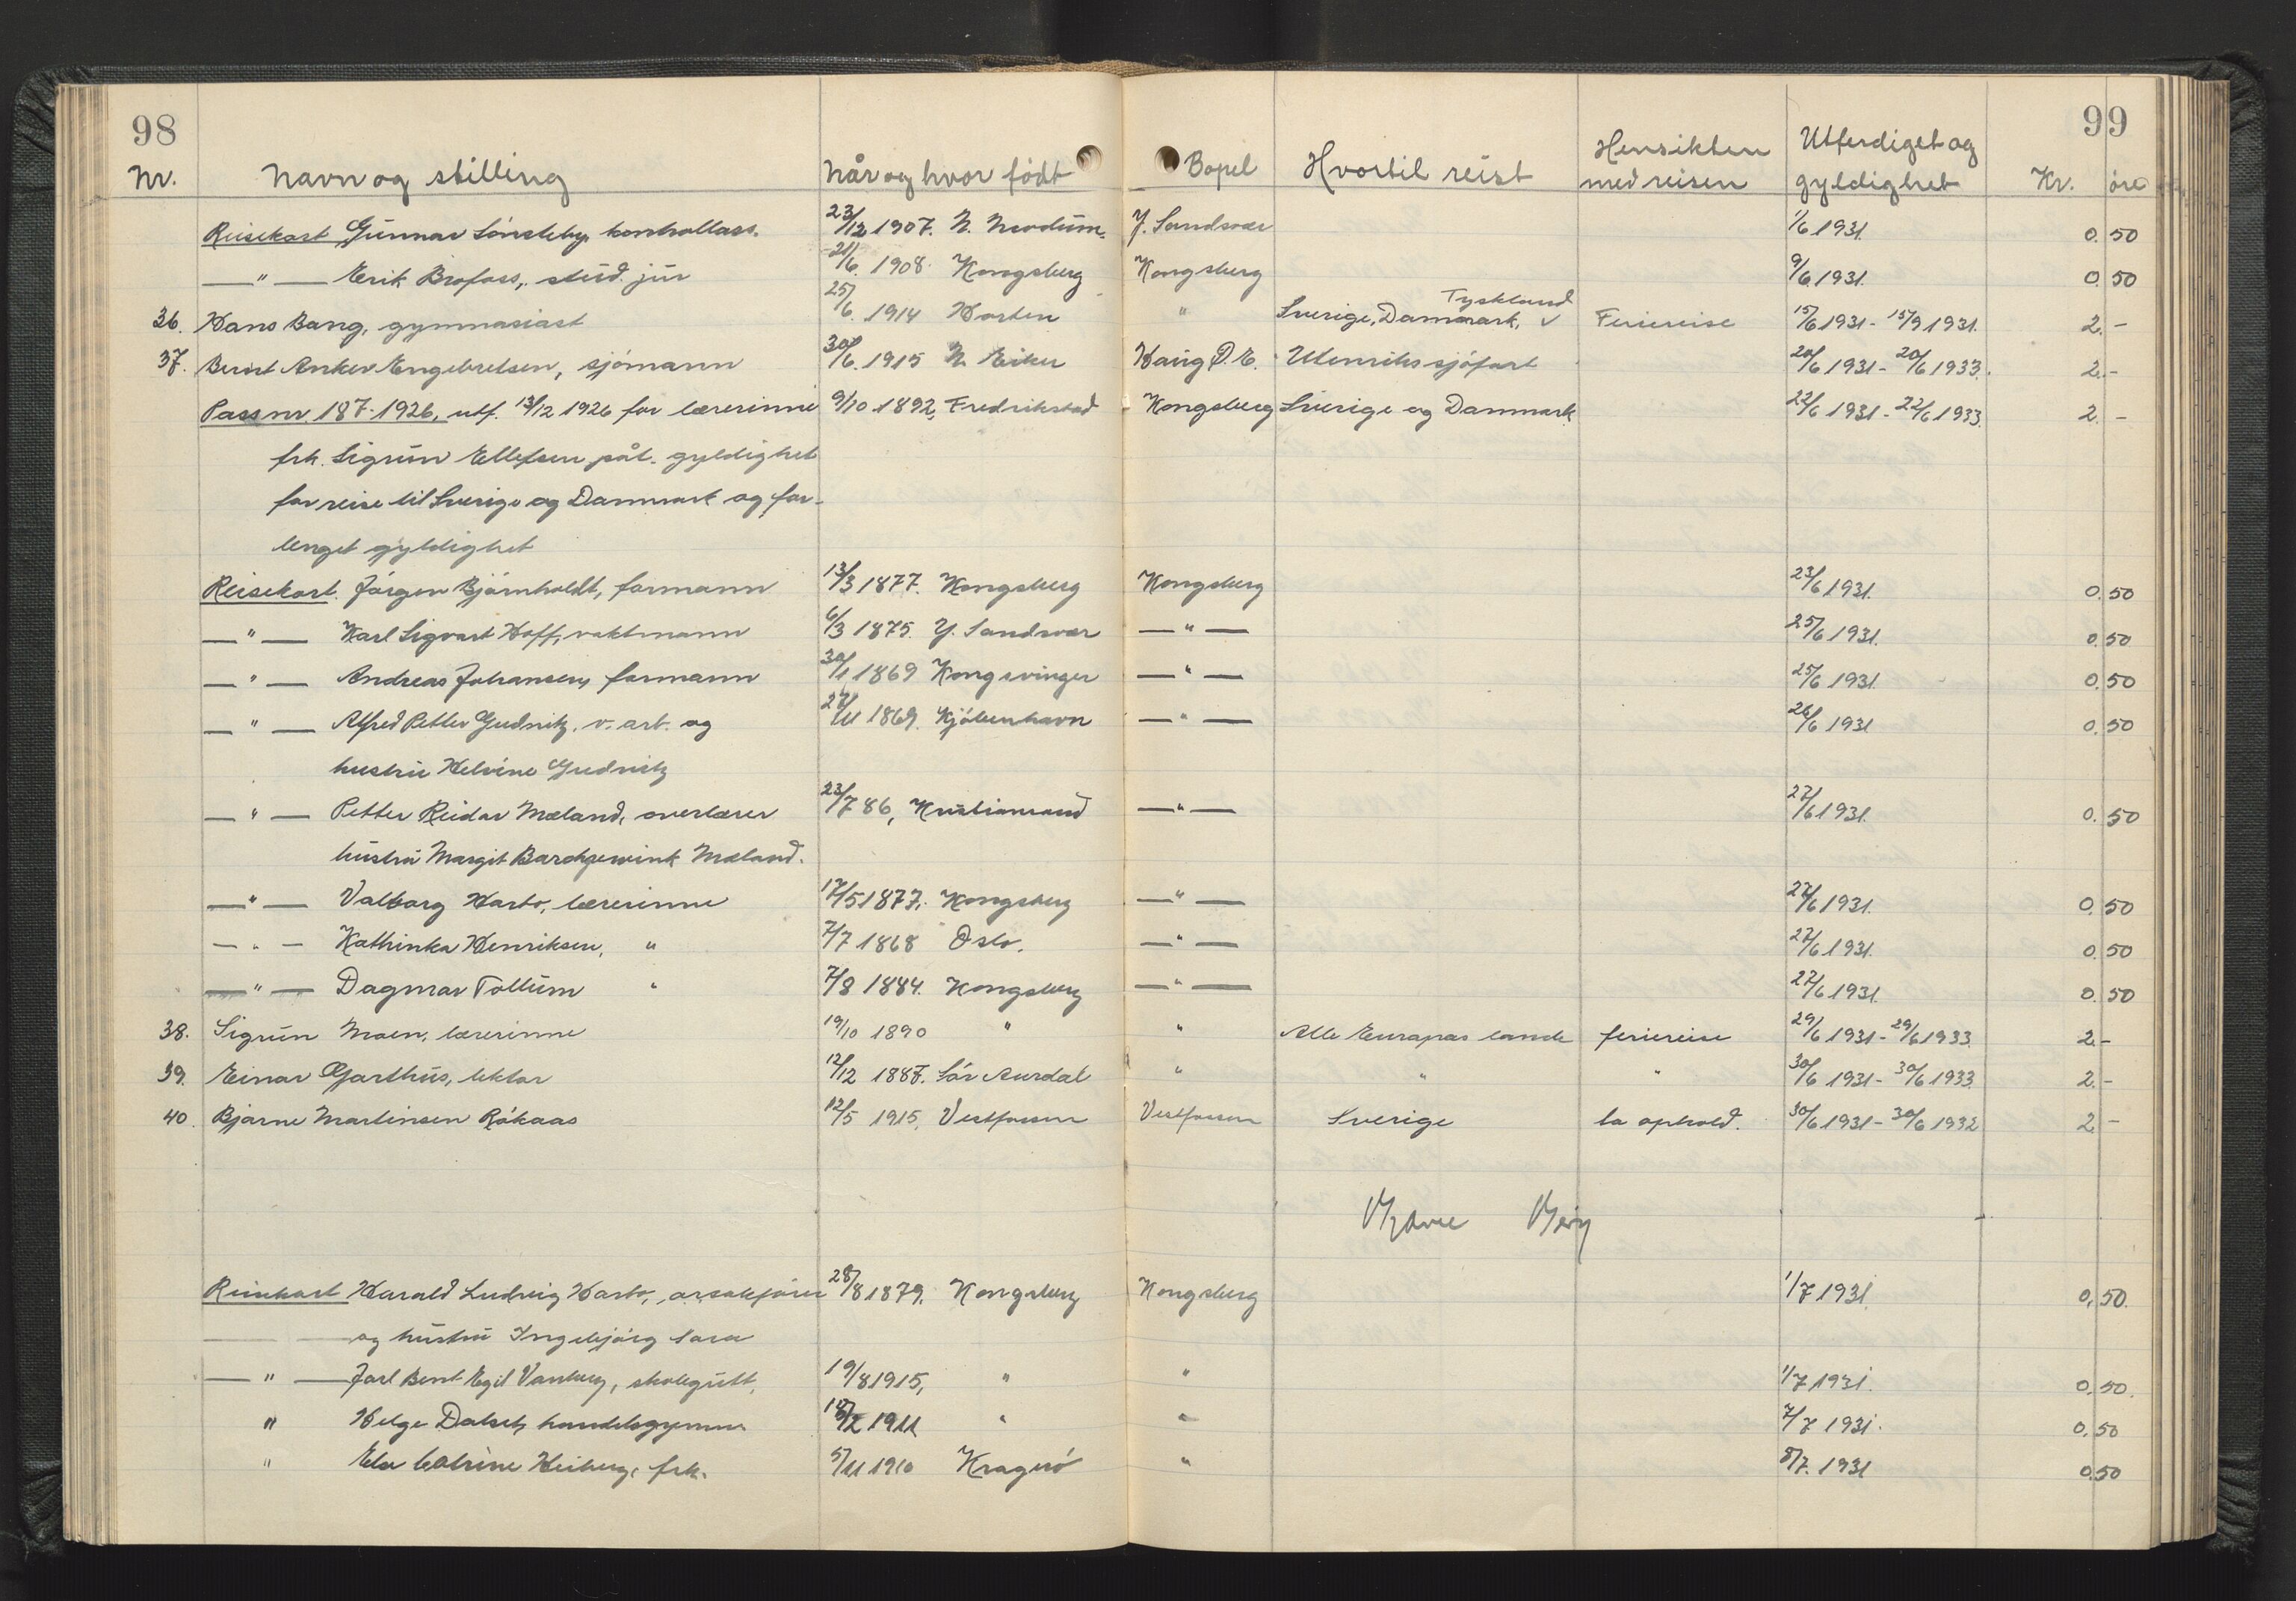 98
99
Nr. Navn og stilling Når og hvor födt Bopel Hvortil reist Hensikten med reisen Utferdiget og gyldighet Kr. öre
Reisekort Gunnar Lönsleby, kontrollass. 23/12 1907. N. Modum. Y. Sandsvær 1/6 1931. 0. 50
—"— Erik Brofoss, stud. jur 21/6. 1908. Kongsberg Kongsberg 9/6 1931. 0. 50
36. Hans Bang, gymnasiast 25/6. 1914 Horten " Sverige, Danmark, v Tyskland Feriereise 15/6 1931 - 15/9 1931. 2. -
37. Bernt Anker Engebretsen, sjömann 30/6. 1915 N. Eiker Haug Ö.E. Utenrikssjöfart 20/6 1931 - 20/6 1933. 2. -
Pass nr. 187-1926, utf. 13/12 1926 for lærerinne 9/10 1892, Fredrikstad Kongsberg Sverige og Danmark 22/6 1931 - 22/6 1933. 2. -
frk. Sigrun Ellefsen påt. gyldighet
for reise til Sverige og Danmark og for-
lenget gyldighet
Reisekort. Jörgen Björnholdt, formann 13/3 1877. Kongsberg Kongsberg 23/6 1931. 0. 50
—"— Karl Sigvart Hoff, vaktmann 6/3 1875. Y. Sandsvær —"— 25/6 1931. 0. 50
—"— Andreas Johansen, formann 30/1 1869 Kongsvinger —"— 25/6 1931. 0. 50
—"— Alfred Petter Gudnitz, v. arb. og 1869. Kjöbenhavn —"— 26/6 1931 0. 50
hustru Helvine Gudnitz
—"— Petter Reidar Mæland, overlærer 23/7 86, Kristiansand —"— 27/6 1931. 0. 50
hustru Margit Mæland.
—"— Valborg Harbo, lærerinne 17/5 1877. Kongsberg —"— 27/6 1931. 0. 50
—"— Kathinka Henriksen, " 7/7 1868 Oslo. —"— 27/6 1931. 0. 50
—"— Dagmar Tollum " 7/8 1884. Kongsberg —"— 27/6 1931. 0. 50
38. Sigrun Moen, lærerinne 19/10 1890 " " Alle Europas lande feriereise 29/6 1931 - 29/6 1933. 2. -
39. Einar Gjarthus, lektor 12/12 1887. Sör Aurdal " " " 30/6 1931 - 30/6 1933. 2. -
40. Bjarne Martinsen Råkaas 12/5 1915, Vestfossen Vestfossen Sverige ta ophold. 30/6 1931 - 30/6 1932 2. -
Reisekort Harald Ludvig Harbo, 28/8 1879, Kongsberg Kongsberg 1/7 1931. 0. 50.
og hustru Ingebjörg Sara
—"— Jarl Bent Egil Vanberg, skolegutt, 19/8 1915, " " 1/7 1931. 0. 50.
" Helge Dalseth, handelsgymn. 1911 " " 7/7 1931. 0. 50
" Else Cathrine Heiberg, frk. 5/11 1910 Kragerö " 8/7. 1931 0. 50